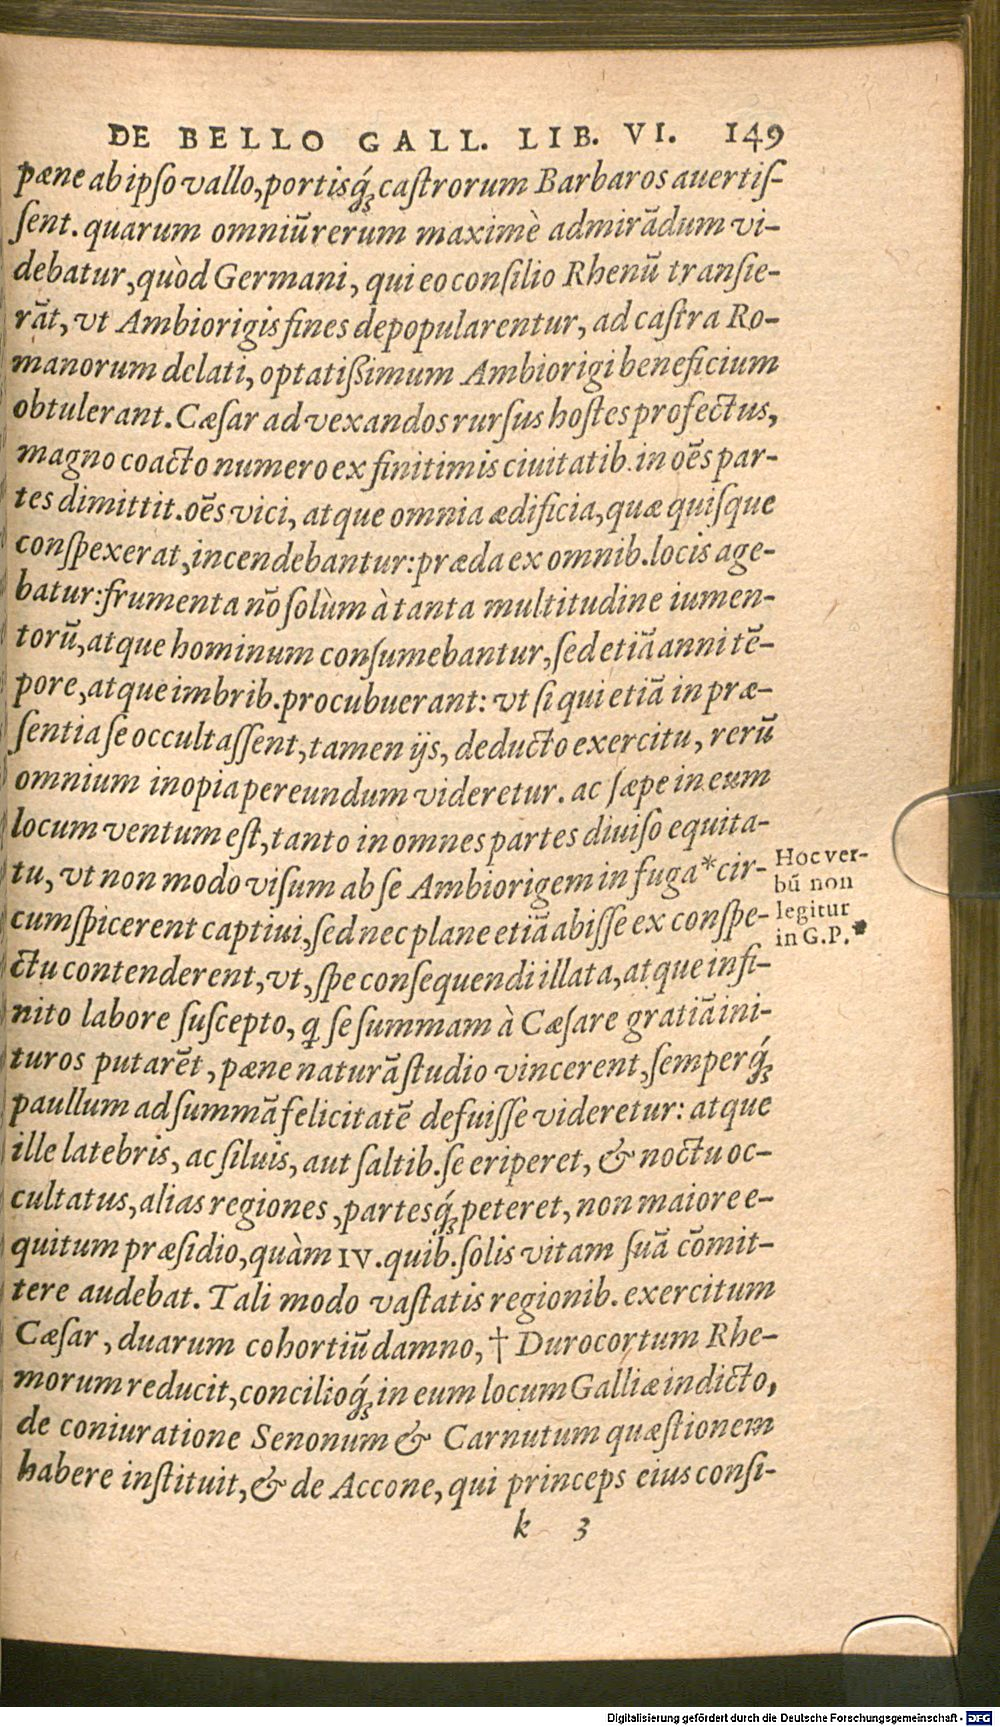 DE BELLO GALL. LIB. VI. 149
pæne ab ipſo vallo, portisq́; caſtrorum Barbaros auertiſ-
ſent. quarum omniū rerum maximè admirādum vi-
debatur, quòd Germani, qui eo conſilio Rhenū tranſie-
rāt, vt Ambiorigis fines depopularentur, ad caſtra Ro-
manorum delati, optatißimum Ambiorigi beneficium
obtulerant. Cæſar ad vexandos rurſus hoſtes profectus,
magno coacto numero ex finitimis ciuitatib. in oēs par-
tes dimittit. oēs vici, atque omnia ædificia, quæ quiſque
conſpexerat, incendebantur: præda ex omnib. locis age-
batur: frumenta nō ſolùm à tanta multitudine iumen-
torū, atque hominum conſumebantur, ſed etiā anni tē-
pore, atque imbrib. procubuerant: vt ſi qui etiā in præ-
ſentia ſe occultaſſent, tamen ijs, deducto exercitu, rerū
omnium inopia pereundum videretur. ac ſæpe in eum
locum ventum eſt, tanto in omnes partes diuiſo equita-
tu, vt non modo viſum ab ſe Ambiorigem in fuga * cir-
cumſpicerent captiui, ſed nec plane etiā abiſſe ex conſpe-
ctu contenderent, vt, ſpe conſequendi illata, atque infi-
nito labore ſuſcepto, q̨ ſe ſummam à Cæſare gratiā ini-
turos putarēt, pæne naturā ſtudio vincerent, ſemperq́;
paullum ad ſummā felicitatē defuiſſe videretur: atque
ille latebris, ac ſiluis, aut ſaltib. ſe eriperet, & noctu oc-
cultatus, alias regiones, partesq́; peteret, non maiore e-
quitum præſidio, quàm IV. quib. ſolis vitam ſuā cōmit-
tere audebat. Tali modo vaſtatis regionib. exercitum
Cæſar, duarum cohortiū damno, † Durocortum Rhe-
morum reducit, concilioq́; in eum locum Galliæ indicto,
de coniuratione Senonum & Carnutum quæſtionem
habere inſtituit, & de Accone, qui princeps eius conſi-
k 3
Hoc ver-
bū non
legitur
in G.P.*
Digitalisierung gefördert durch die Deutsche Forschungsgemeinschaft - DFG